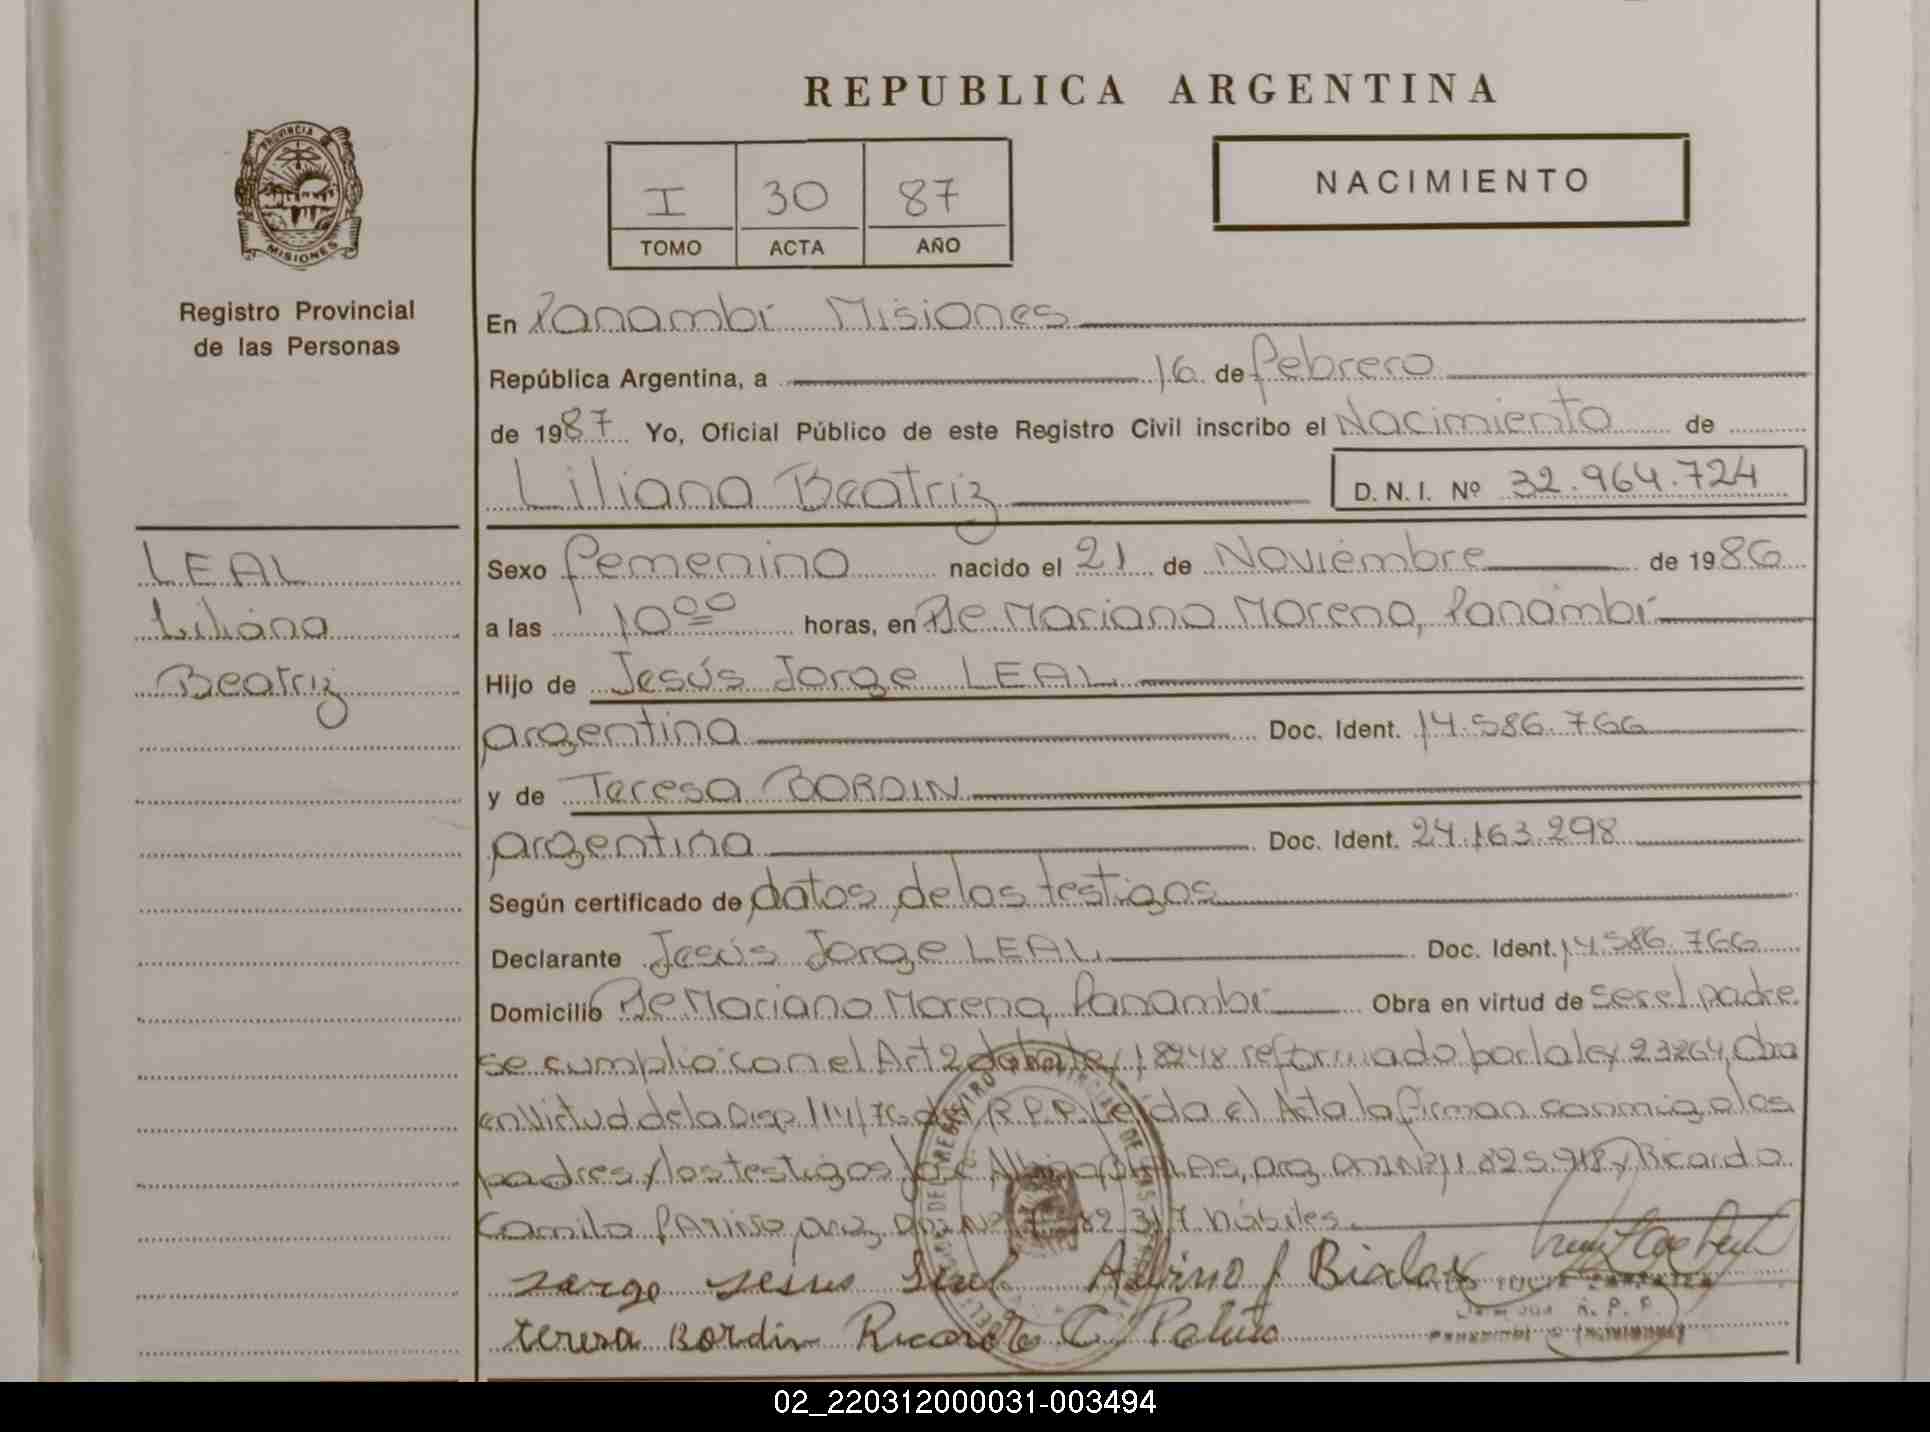 REPUBLICA ARGENTINA
PROVINCIA
MISIONES
Registro Provincial
de las Personas
I 30 87
TOMO ACTA AÑO
NACIMIENTO
En Panambí Misiones
República Argentina, a 16 de febrero
de 1987 Yo, Oficial Público de este Registro Civil inscribo el Nacimiento de
Liliana Beatriz
D. N. I. Nº 32.964.724
LEAL
Liliana
Beatriz
Sexo femenino nacido el 21 de Noviembre de 1986
a las 10 00 horas, en Pje Mariano Moreno, Panambí
Hijo de Jesús Jorge LEAL
argentina Doc. Ident. 14.586.766
y de Teresa BORDIN
argentina Doc. Ident. 24.163.298
Según certificado de datos de los testigos
Declarante Jesús Jorge LEAL Doc. Ident. 14.586.766
Domicilio Pje Mariano Moreno, Panambí Obra en virtud de ser el padre
se cumplió con el Art 2 de la ley 18248 reformado por la ley 23264, Obra
en Virtud de la Disp 114/76 del R.P.P. Leída el Acta la firman conmigo los
padres y los testigos José Albino arg. y Ricardo
Camilo arg. hábiles.
Jorge Jesus Leal Albino J Bialas
teresa Bordin Ricardo C.
02_220312000031-003494